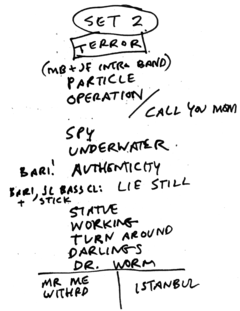 SET 2
TERROR
(MB + JF INTRO BAND)
PARTICLE
OPERATION
/ CALL YOU MOM
SPY
UNDERWATER
BARI! AUTHENTICITY
BARI, SL BASS CL: LIE STILL
+ STICK
STATUE
WORKING
TURN AROUND
DARLINGS
DR. WORM
MR ME
ISTANBUL
WITHRD